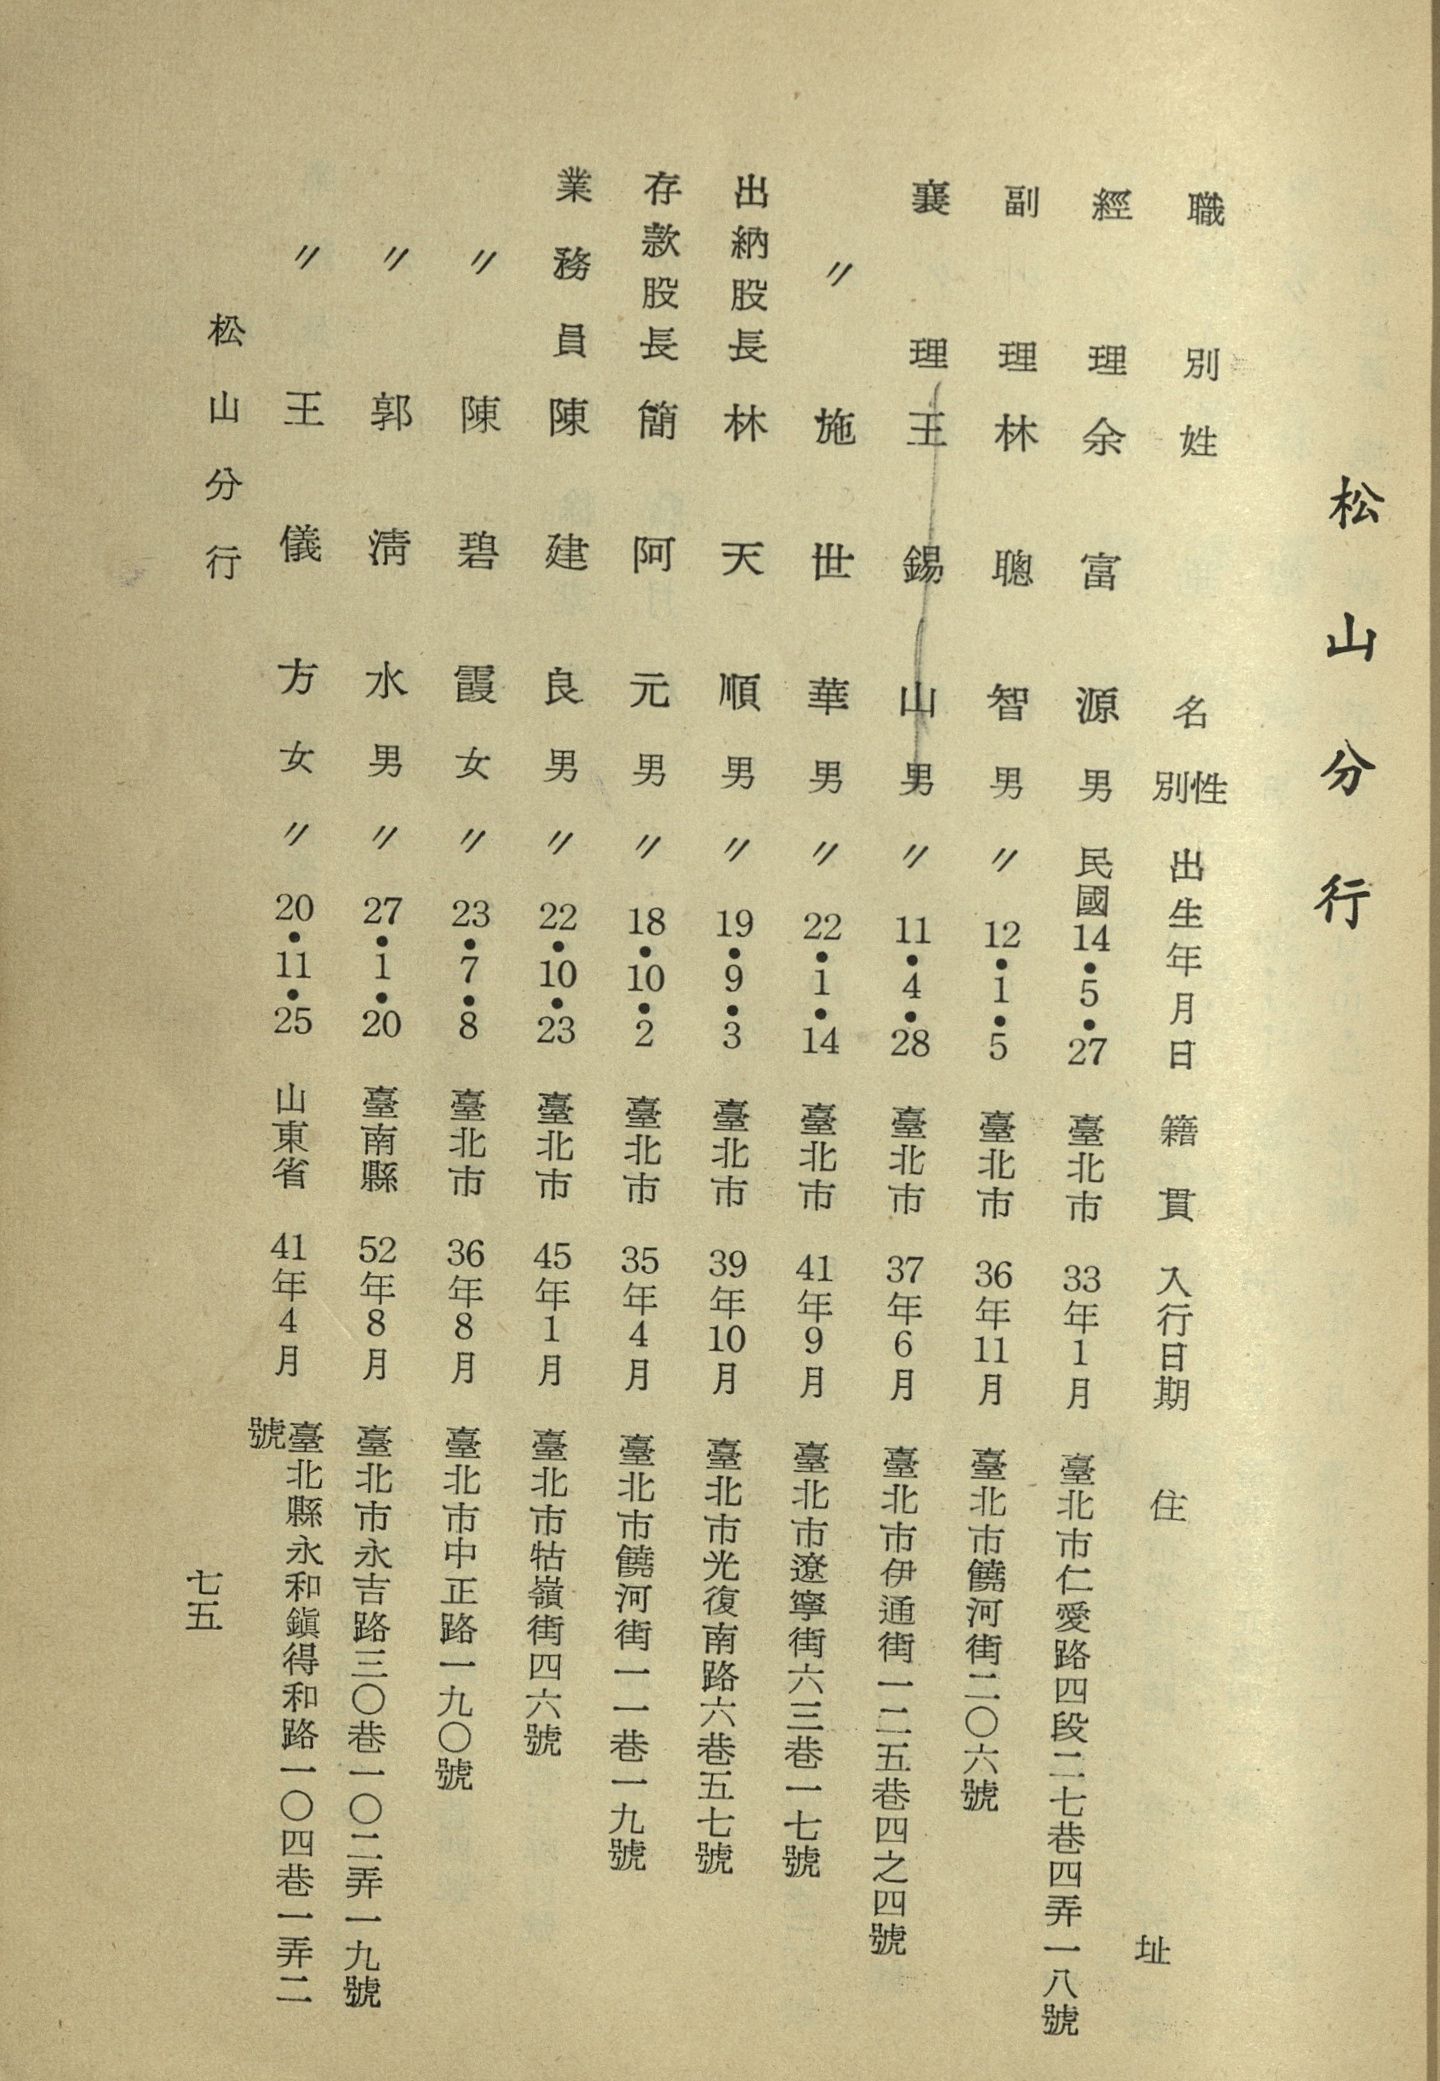 松山分行
職別 姓名 性別 出生年月日 籍貫 入行日期 住址
經理 余富源 男 民國14•5•27 臺北市 33年1月 臺北市仁愛路四段二七巷四弄一八號
副理 林聰智 男 〃12•1•5 臺北市 36年11月 臺北市饒河街二〇六號
襄理 王錫山 男 〃11•4•28 臺北市 37年6月 臺北市伊通街一二五巷四之四號
〃 施世華 男 〃22•1•14 臺北市 41年9月 臺北市遼寧街六三巷一七號
出納股長 林天順 男 〃19•9•3 臺北市 39年10月 臺北市光復南路六巷五七號
存款股長 簡阿元 男 〃18•10•2 臺北市 35年4月 臺北市饒河街一一巷一九號
業務員 陳建良 男 〃22•10•23 臺北市 45年1月 臺北市牯嶺街四六號
〃 陳碧霞 女 〃23•7•8 臺北市 36年8月 臺北市中正路一九〇號
〃 郭淸水 男 〃27•1•20 臺南縣 52年8月 臺北市永吉路三〇巷一〇二弄一九號
〃 王儀方 女 〃20•11•25 山東省 41年4月 臺北縣永和鎭得和路一〇四巷一弄二
號
松山分行
七五